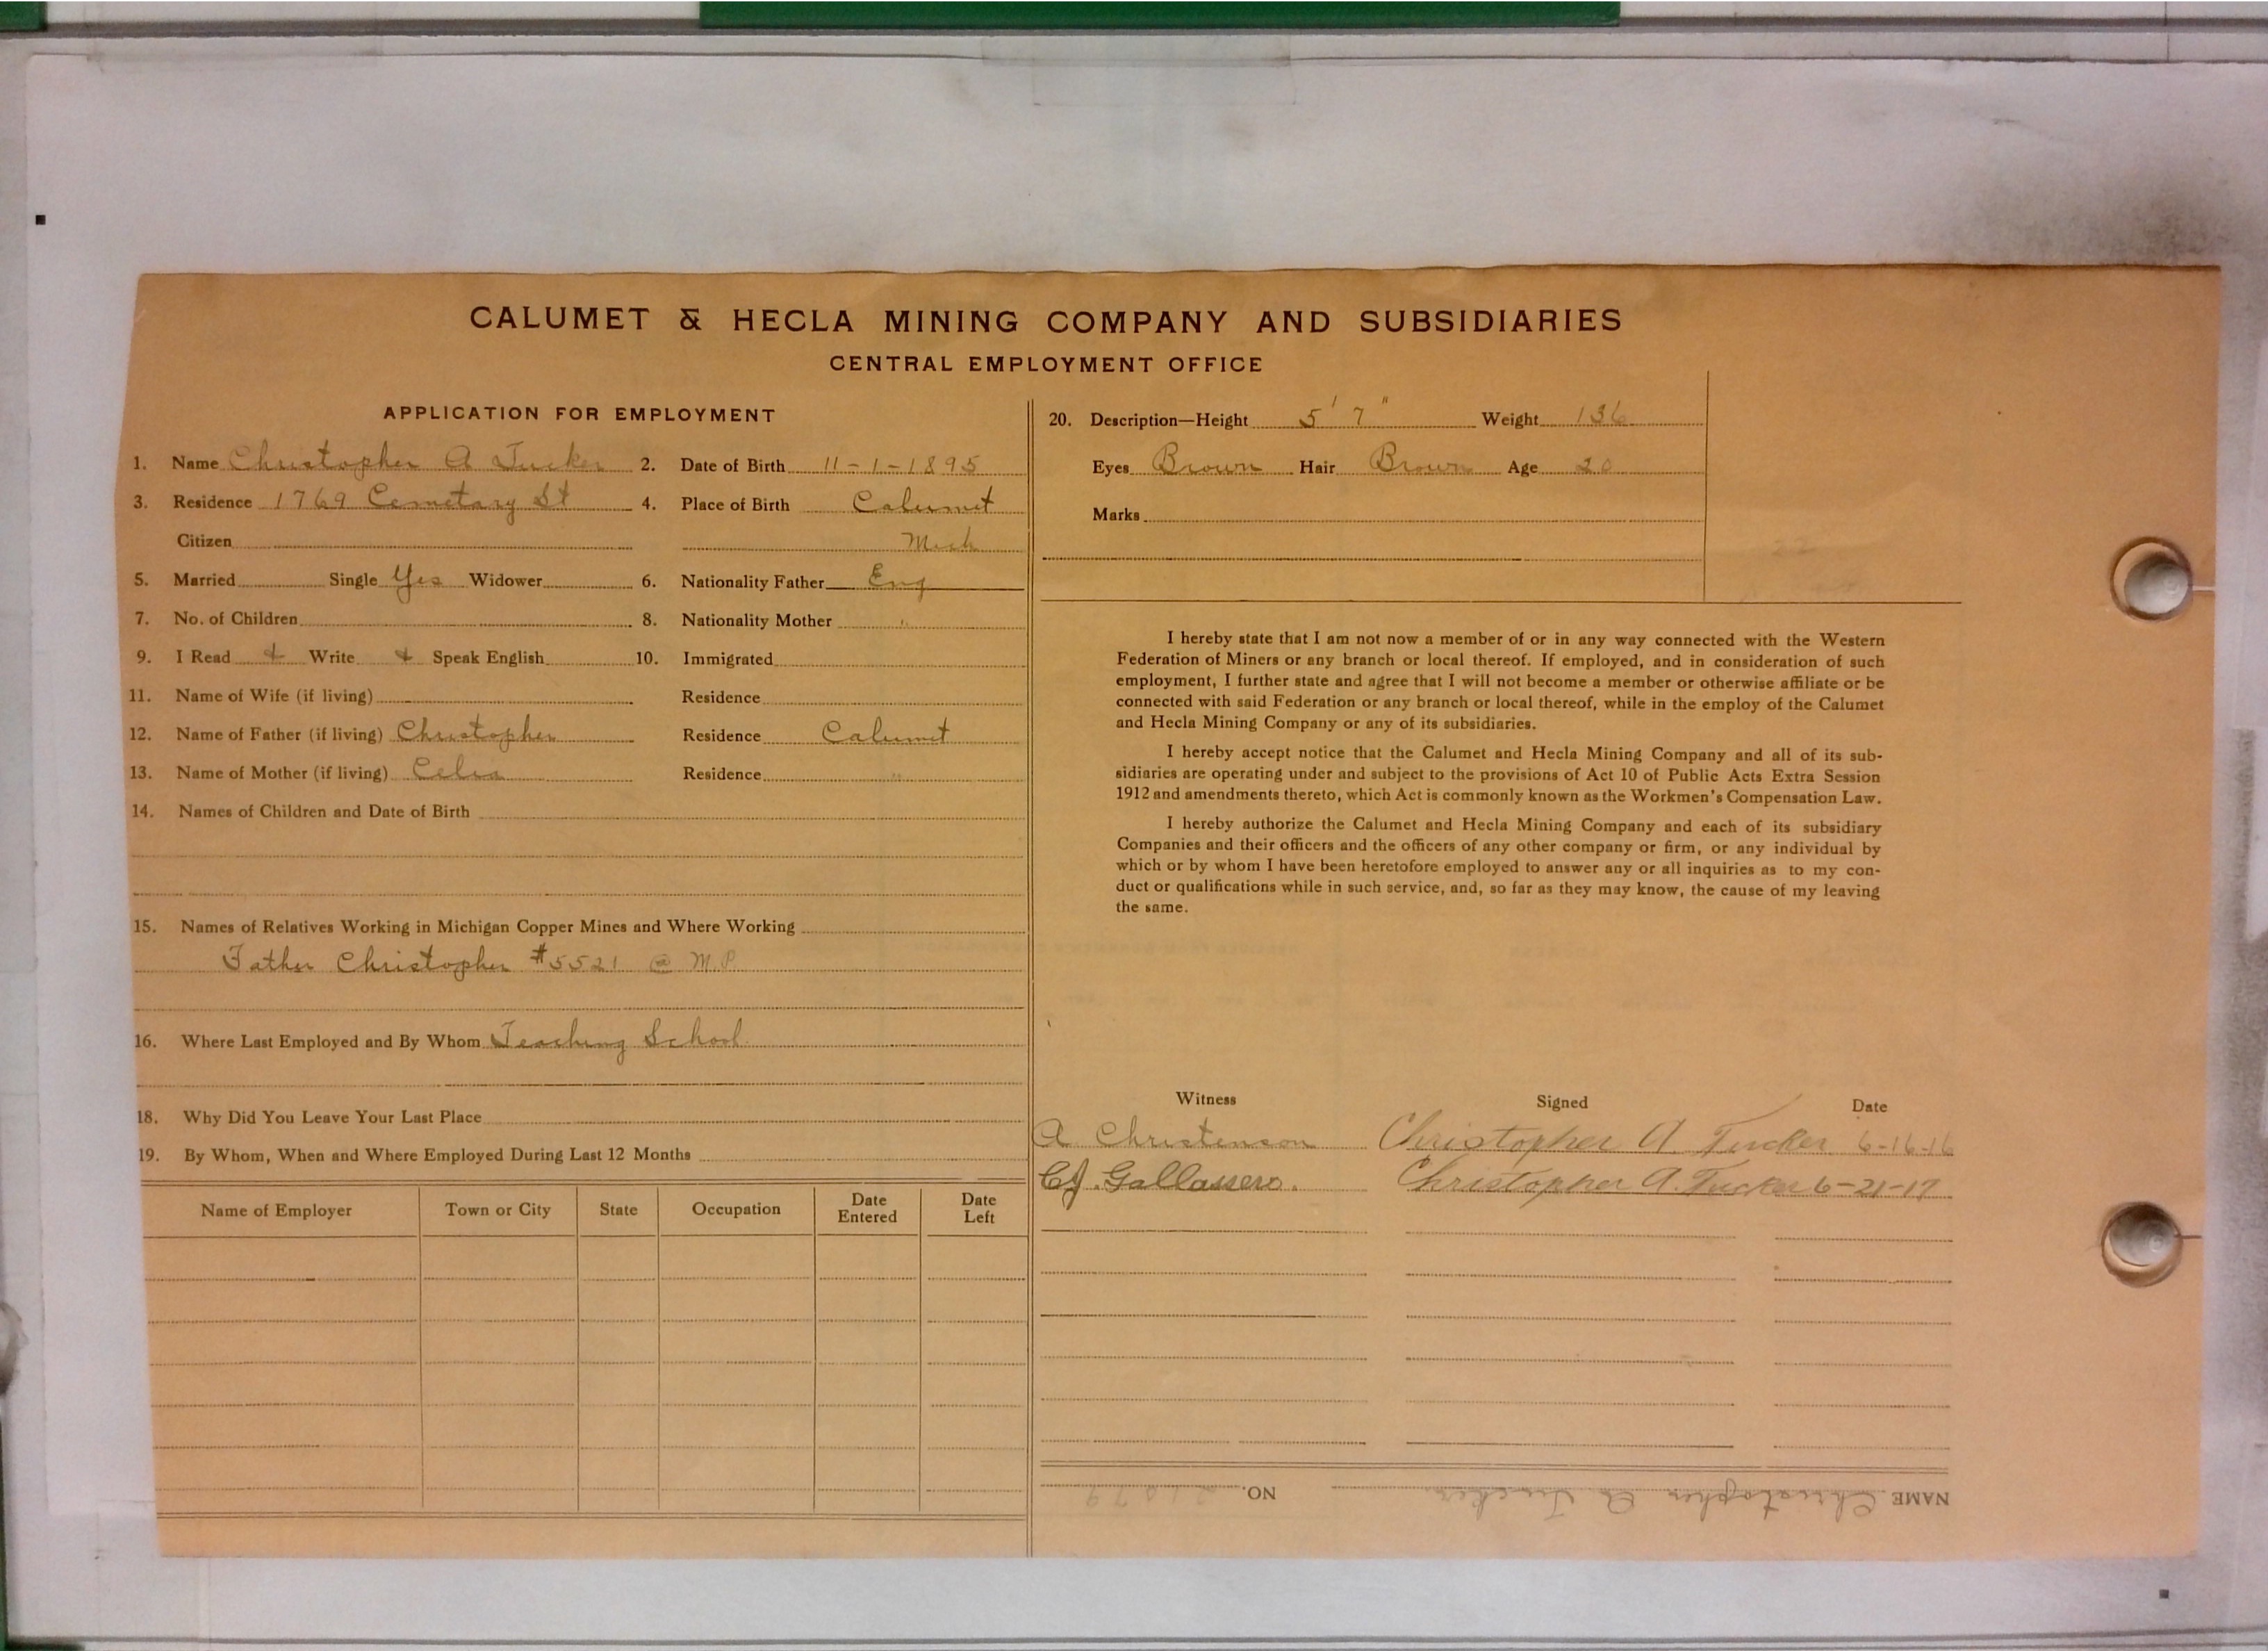 CALUMET & HECLA MINING COMPANY AND SUBSIDIARIES
CENTRAL EMPLOYMENT OFFICE
APPLICATION FOR EMPLOYMENT
1. Name Christopher A Tucker 2. Date of Birth 11-1-1895
3. Residence 1769 Cemetary St 4. Place of Birth Calumet
Citizen Mich
5. Married Single Yes Widower 6. Nationality Father Eng
7. No. of Children 8. Nationality Mother "
9. I Read + Write + Speak English 10. Immigrated
11. Name of Wife (if living) Residence
12. Name of Father (if living) Christopher Residence Calumet
13. Name of Mother (if living) Celia Residence "
14. Names of Children and Date of Birth
15. Names of Relatives Working in Michigan Copper Mines and Where Working
Father Christopher #5521 @ M.P.
16. Where Last Employed and By Whom Teaching School.
18. Why Did You Leave Your Last Place
19. By Whom, When and Where Employed During Last 12 Months
Name of Employer Town or City State Occupation Date Entered Date Left
20. Description—Height 5' 7" Weight 136
Eyes Brown Hair Brown Age 20
Marks
I hereby state that I am not now a member of or in any way connected with the Western
Federation of Miners or any branch or local thereof. If employed, and in consideration of such
employment, I further state and agree that I will not become a member or otherwise affiliate or be
connected with said Federation or any branch or local thereof, while in the employ of the Calumet
and Hecla Mining Company or any of its subsidiaries.
I hereby accept notice that the Calumet and Hecla Mining Company and all of its sub-
sidiaries are operating under and subject to the provisions of Act 10 of Public Acts Extra Session
1912 and amendments thereto, which Act is commonly known as the Workmen's Compensation Law.
I hereby authorize the Calumet and Hecla Mining Company and each of its subsidiary
Companies and their officers and the officers of any other company or firm, or any individual by
which or by whom I have been heretofore employed to answer any or all inquiries as to my con-
duct or qualifications while in such service, and, so far as they may know, the cause of my leaving
the same.
Witness Signed Date
A Christenson Christopher A. Tucker 6-16-16
C.J. Gallassero. Christopher A. Tucker 6-21-17
NAME Christopher A Tucker NO. 21079